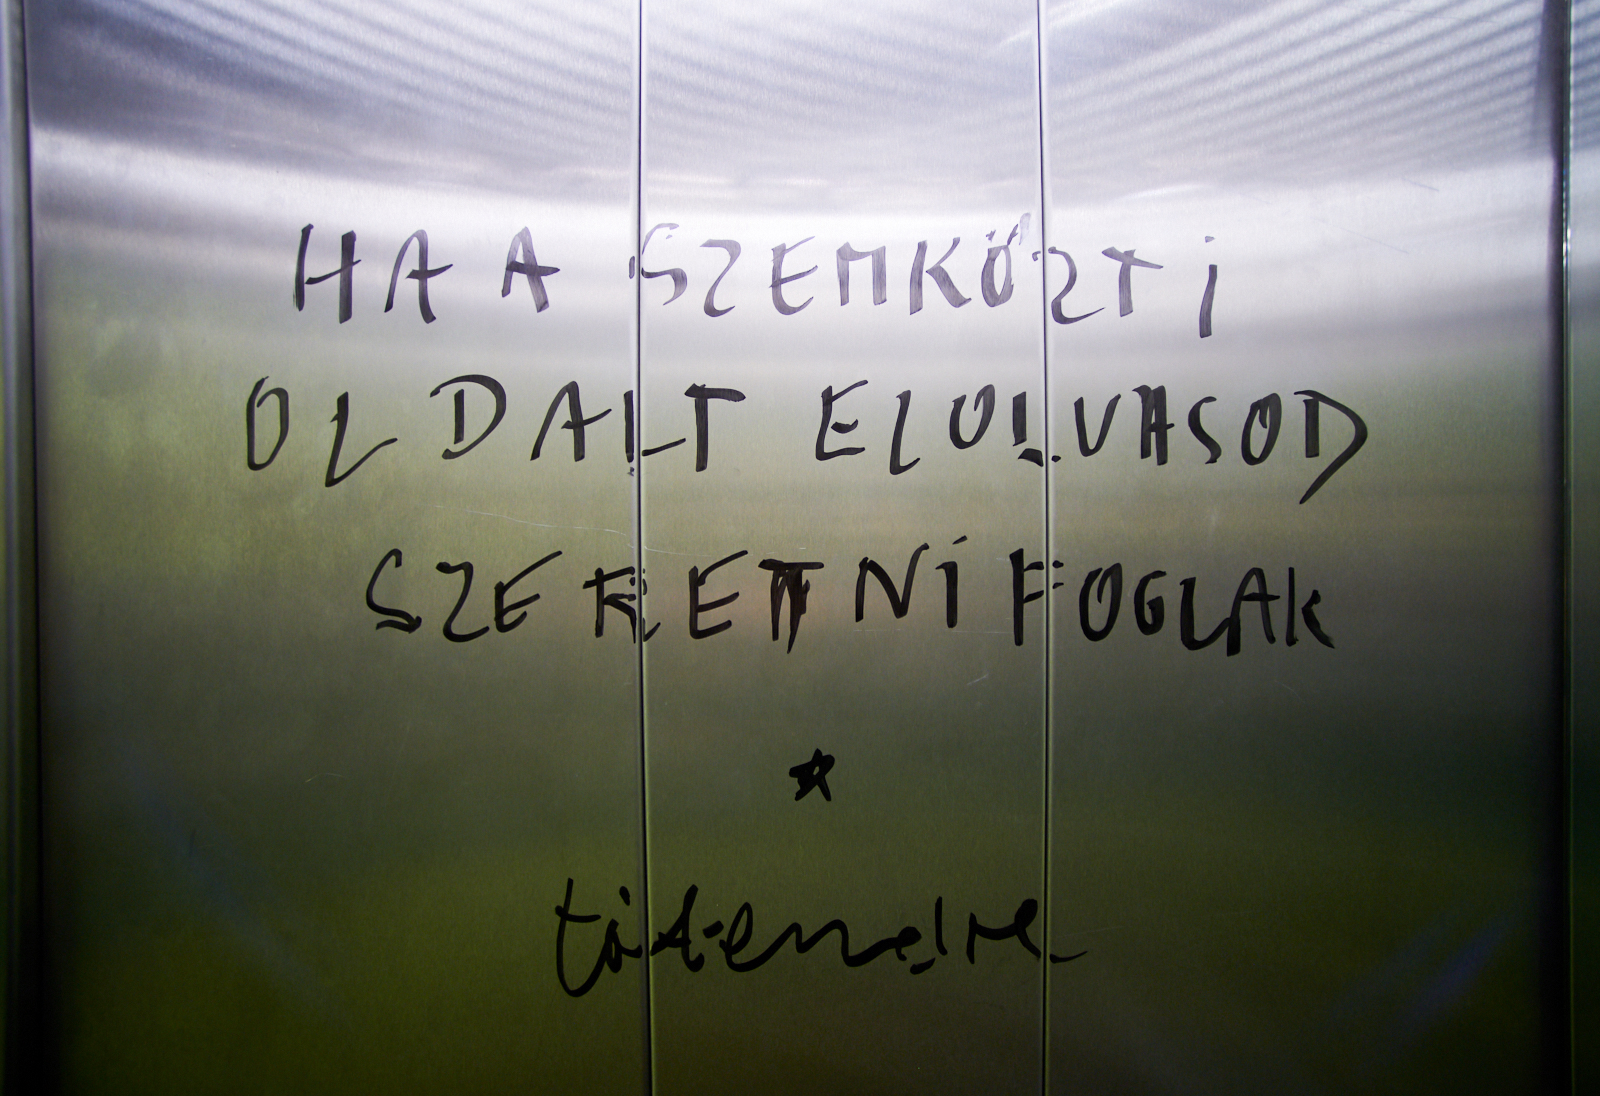 HA A SZEMKÖZTI
OLDALT ELOLVASOD
SZERETNI FOGLAK
tót endre